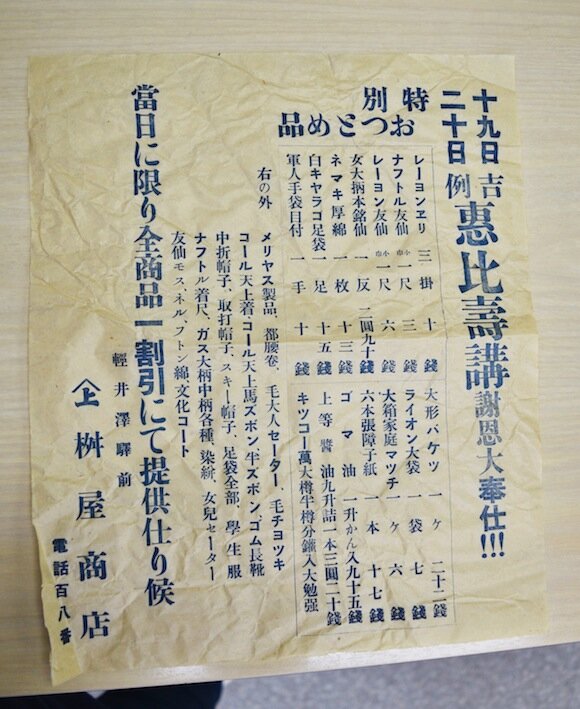 十九日
二十日
吉例
惠比壽講
謝恩大奉仕!!!
特別
おつとめ品
レーヨンヱリ 三掛 十錢
ナフトル友仙 小巾一尺 三錢
レーヨン友仙 小巾一尺 六錢
女大柄本銘仙 一反 二圓九十錢
ネマキ厚綿 一枚 十三錢
白キヤラコ足袋 一足 十五錢
軍人手袋目付 一手 十錢
大形バケツ 一ケ 二十二錢
ライオン大袋 一袋 七錢
大箱家庭マツチ 一ケ 六錢
六本張障子紙 一本 十七錢
ゴマ油 一升かん入九十五錢
上等醬油九升詰一本三圓二十錢
キツコー萬大樽半樽分鑵入大勉强
右の外
メリヤス製品、都腰卷、毛大人セーター、毛チヨツキ
コール天上着・コール天上馬ズボン半ズボン、ゴム長靴
中折帽子、取打帽子、スキー帽子、足袋全部、學生服
ナフトル着尺、ガス大柄中柄各種、染絣、女兒セーター
友仙モス、ネル、フトン綿、文化コート
當日に限り全商品一割引にて提供仕り候
輕井澤驛前
上 桝屋商店
電話百八番